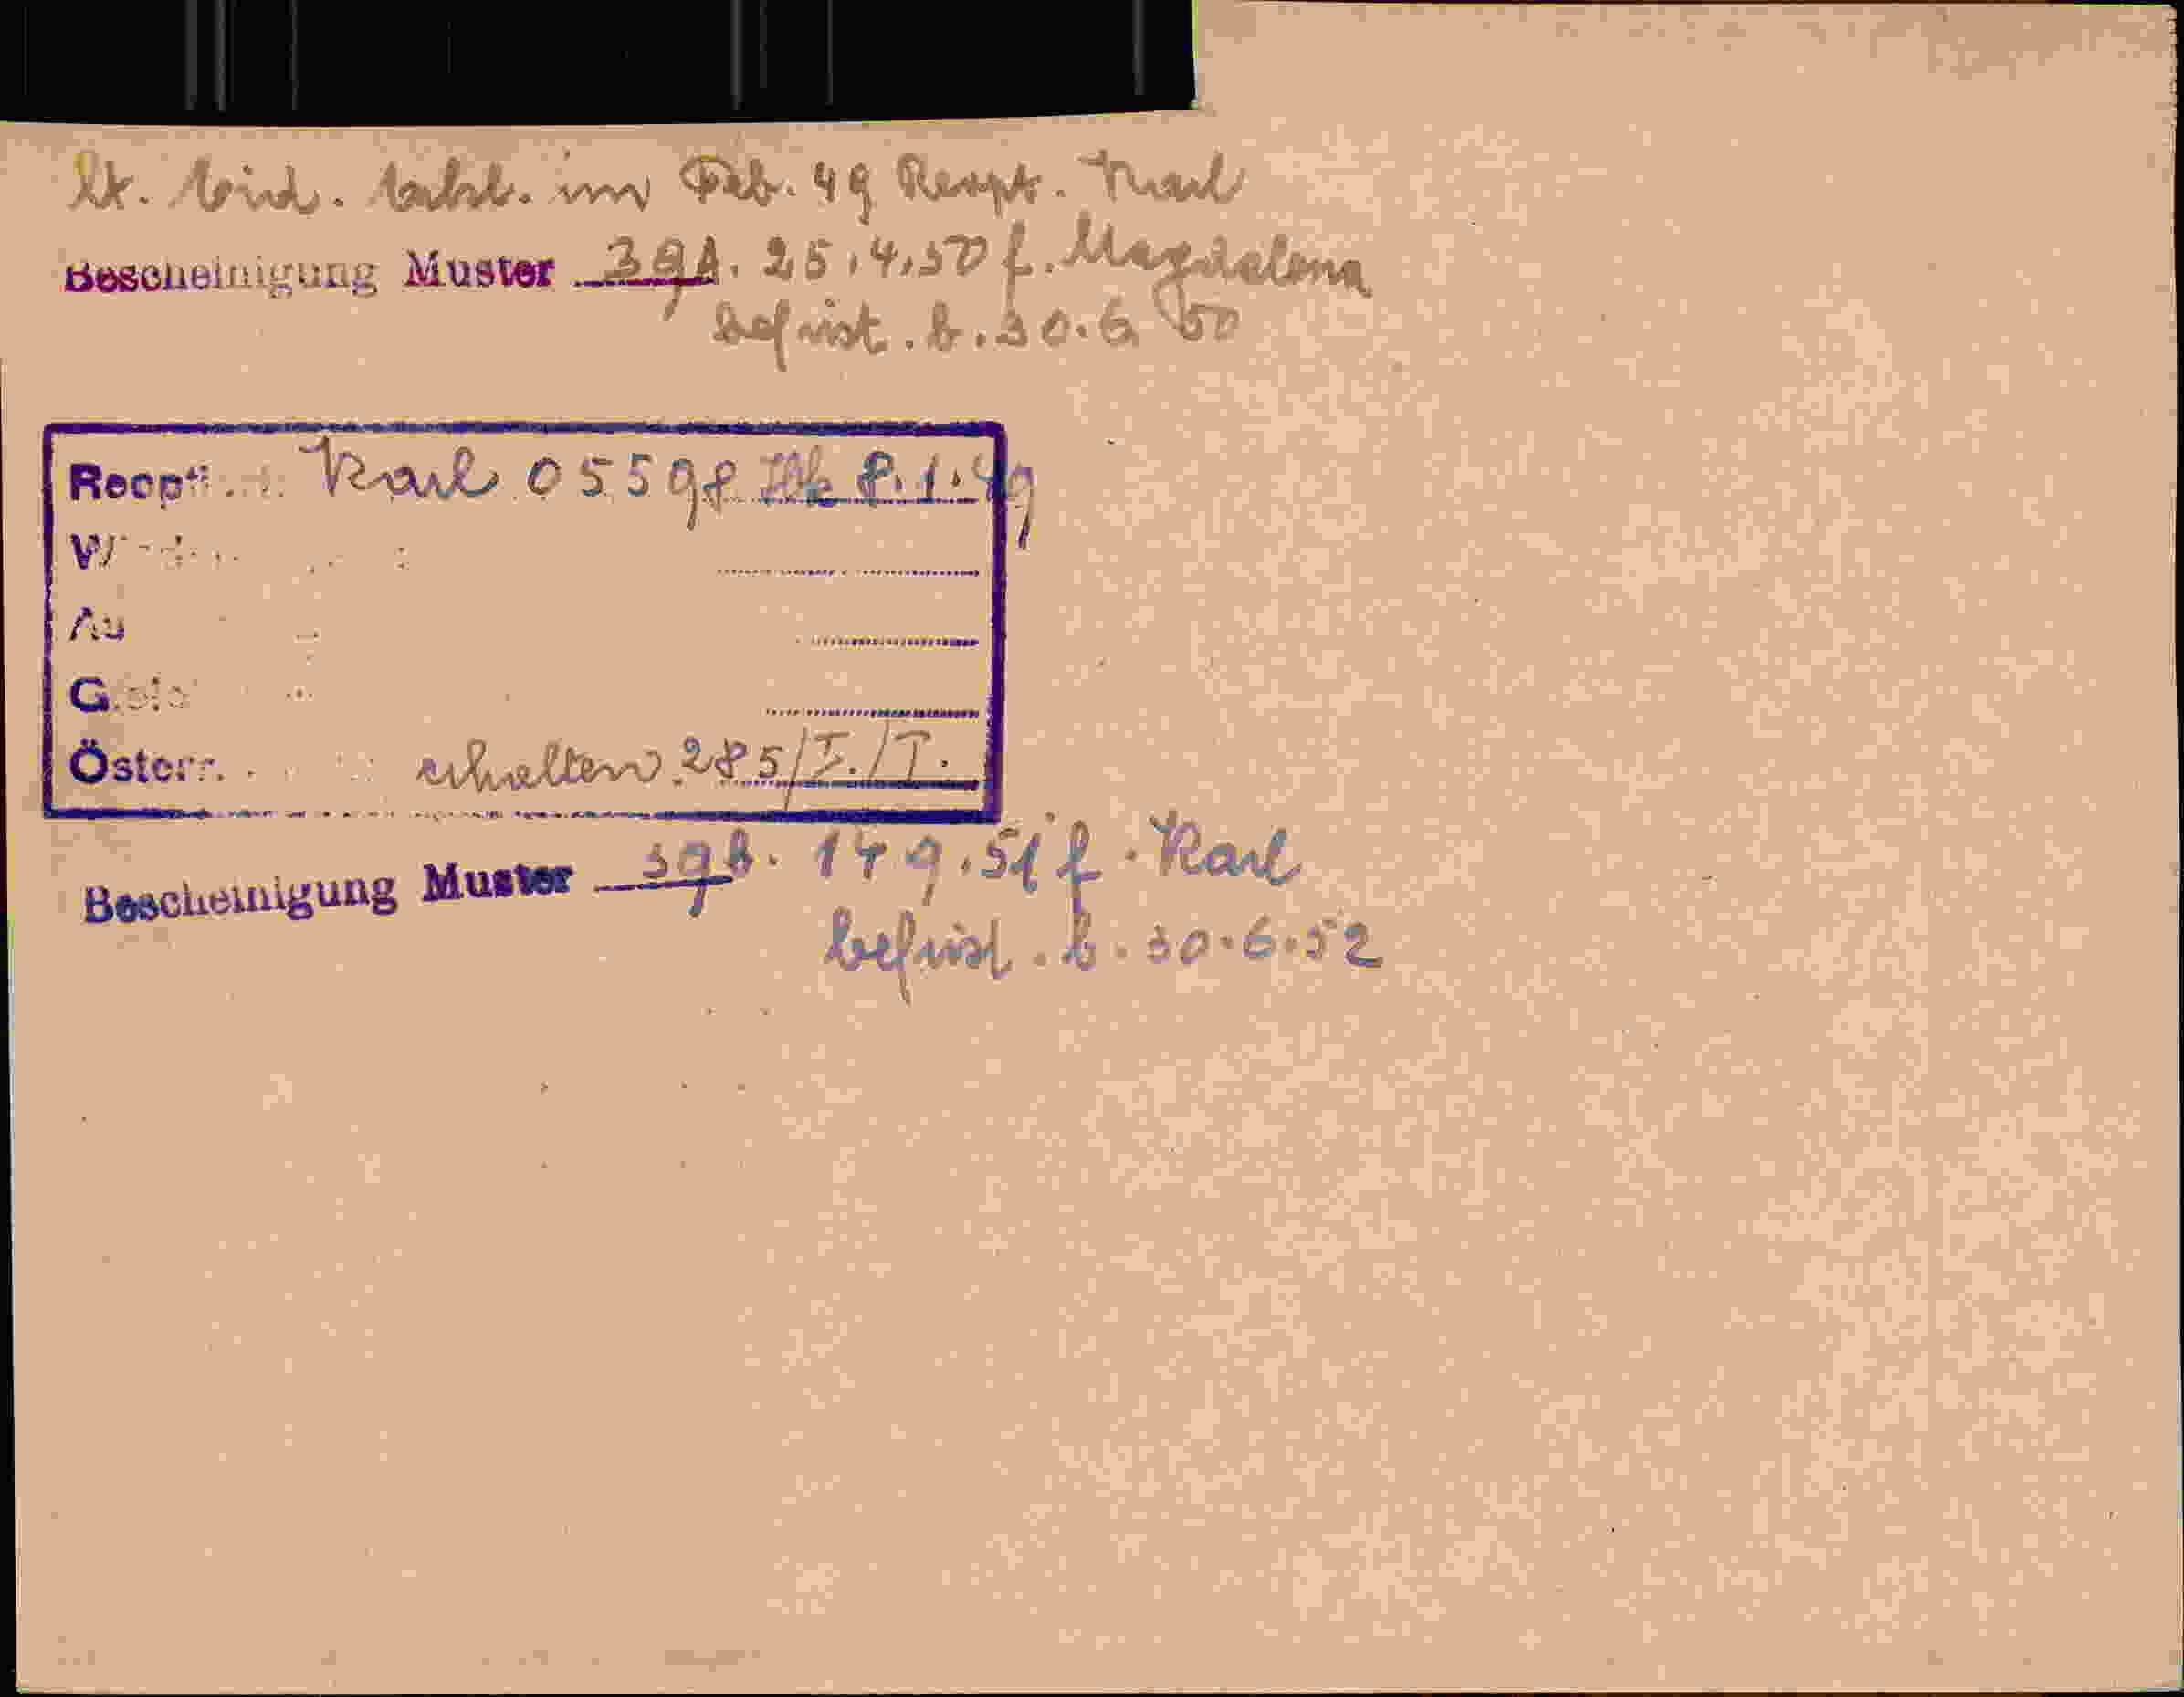 lt. eid. Erkl. im Feb. 49 Reopt. Karl
Bescheinigung Muster 39A. 25.4.50 f. Magdalena
befrist. b. 30.6 50
Reopt Karl 05598 8.1.49
Österr. erhalten 285/I./I.
Bescheinigung Muster 39b. 149.51 f. Karl
befrist. b. 30.6.52